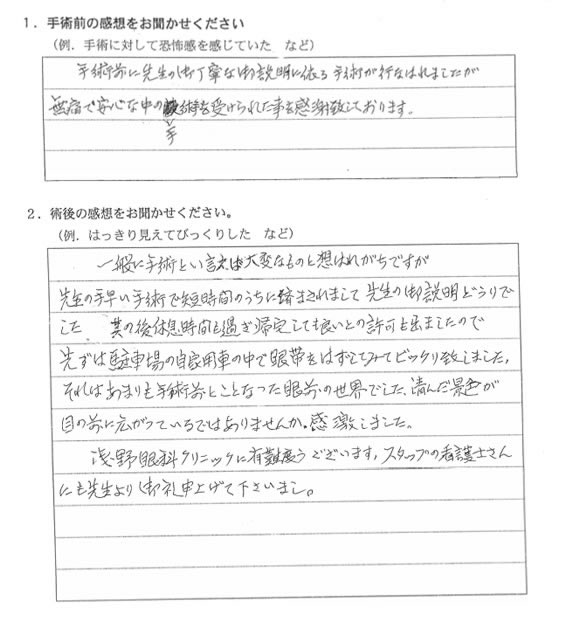 1．手術前の感想をお聞かせください
（例．手術に対して恐怖感を感じていた　など）
手術前に先生の御丁寧な御説明に依る手術が行なはれましたが
無痛で安心な中の手術を受けられた事を感謝致しております。
2．術後の感想をお聞かせください。
（例．はっきり見えてびっくりした　など）
一般に手術とい言えば大変なものと想はれがちですが
先生の手早い手術で短時間のうちに済まされまして先生の御説明どうりで
した　其の後休息時間も過ぎ帰宅しても良いとの許可も出ましたので
先ずは駐車場の自家用車の中で眼帯をはずしてみてビックリ致しました。
それはあまりも手術前とことなった眼前の世界でした、清んだ景色が
目の前に広がっているではありませんか。感激しました。
浅野眼科クリニックに有難度うございます，スタッフの看護士さん
にも先生より御礼申上げて下さいまし。